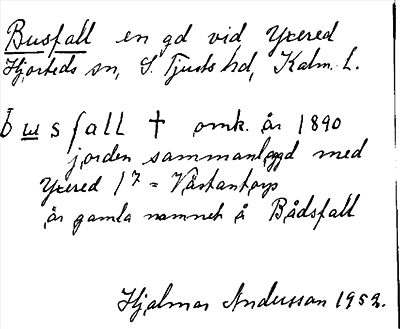 Busfall en gd vid Yxered
Hjorteds sn, S. Tjusts hd, Kalm. l.
busfall † omk. år 1890
jorden sammanlagd med
Yxered 1⁷ = Västantorps
är gamla namnet å Bådsfall
Hjalmar Andersson 1952.